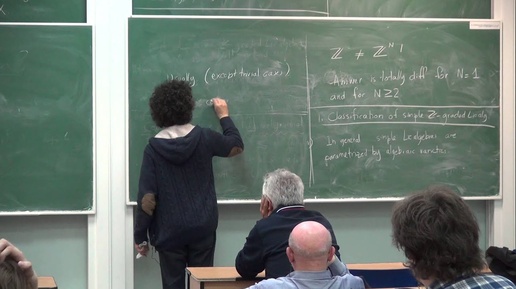 Usually (except trivial cases)
ℤ ≠ ℤᴺ !
Answer is totally diff for N=1
and for N≥2
1. Classification of simple ℤ-graded Lie alg
In general simple Lie algebras are
parametrized by algebraic